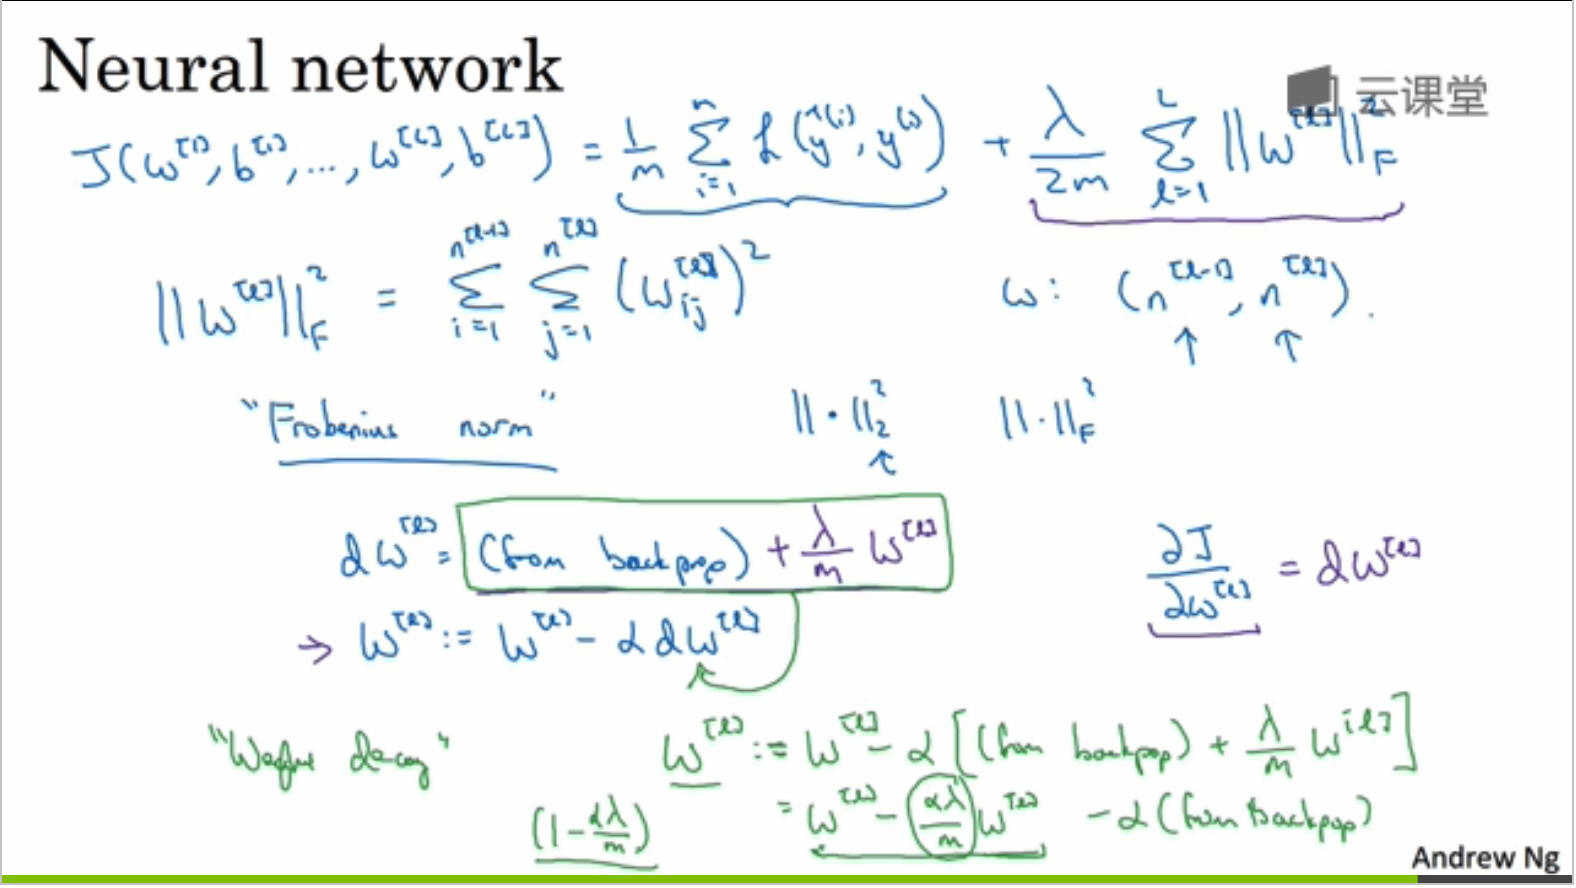 Neural network
云课堂
J(w^[1], b^[1], ..., w^[L], b^[L]) = 1/m Σ_{i=1}^{n} L(ŷ^(i), y^(i)) + λ/2m Σ_{l=1}^{L} ||w^[l]||_F^2
||w^[l]||_F^2 = Σ_{i=1}^{n^[l-1]} Σ_{j=1}^{n^[l]} (w_ij^[l])^2 w: (n^[l-1], n^[l]).
↑ ↑
"Frobenius norm" ||·||_2^2 ||·||_F^2
↑
dw^[l] = (from backprop) + λ/m w^[l] ∂J/∂w^[l] = dw^[l]
→ w^[l] := w^[l] - α dw^[l]
"Weight decay" w^[l] := w^[l] - α [(from backprop) + λ/m w^[l]]
(1 - αλ/m) = w^[l] - αλ/m w^[l] - α (from backprop)
Andrew Ng